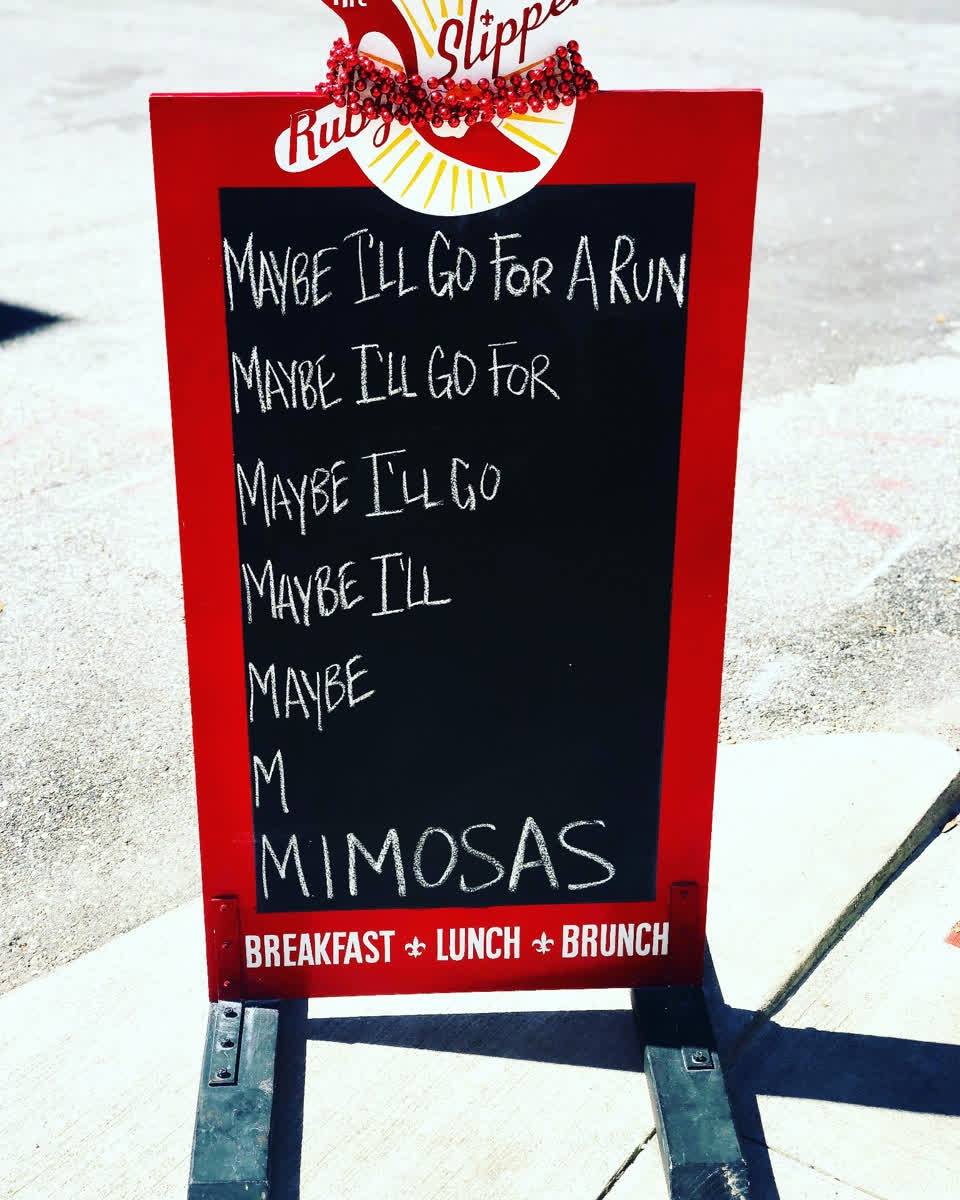 THE
Ruby
Slipper
MAYBE I'LL GO FOR A RUN
MAYBE I'LL GO FOR
MAYBE I'LL GO
MAYBE I'LL
MAYBE
M
MIMOSAS
BREAKFAST ⚜ LUNCH ⚜ BRUNCH